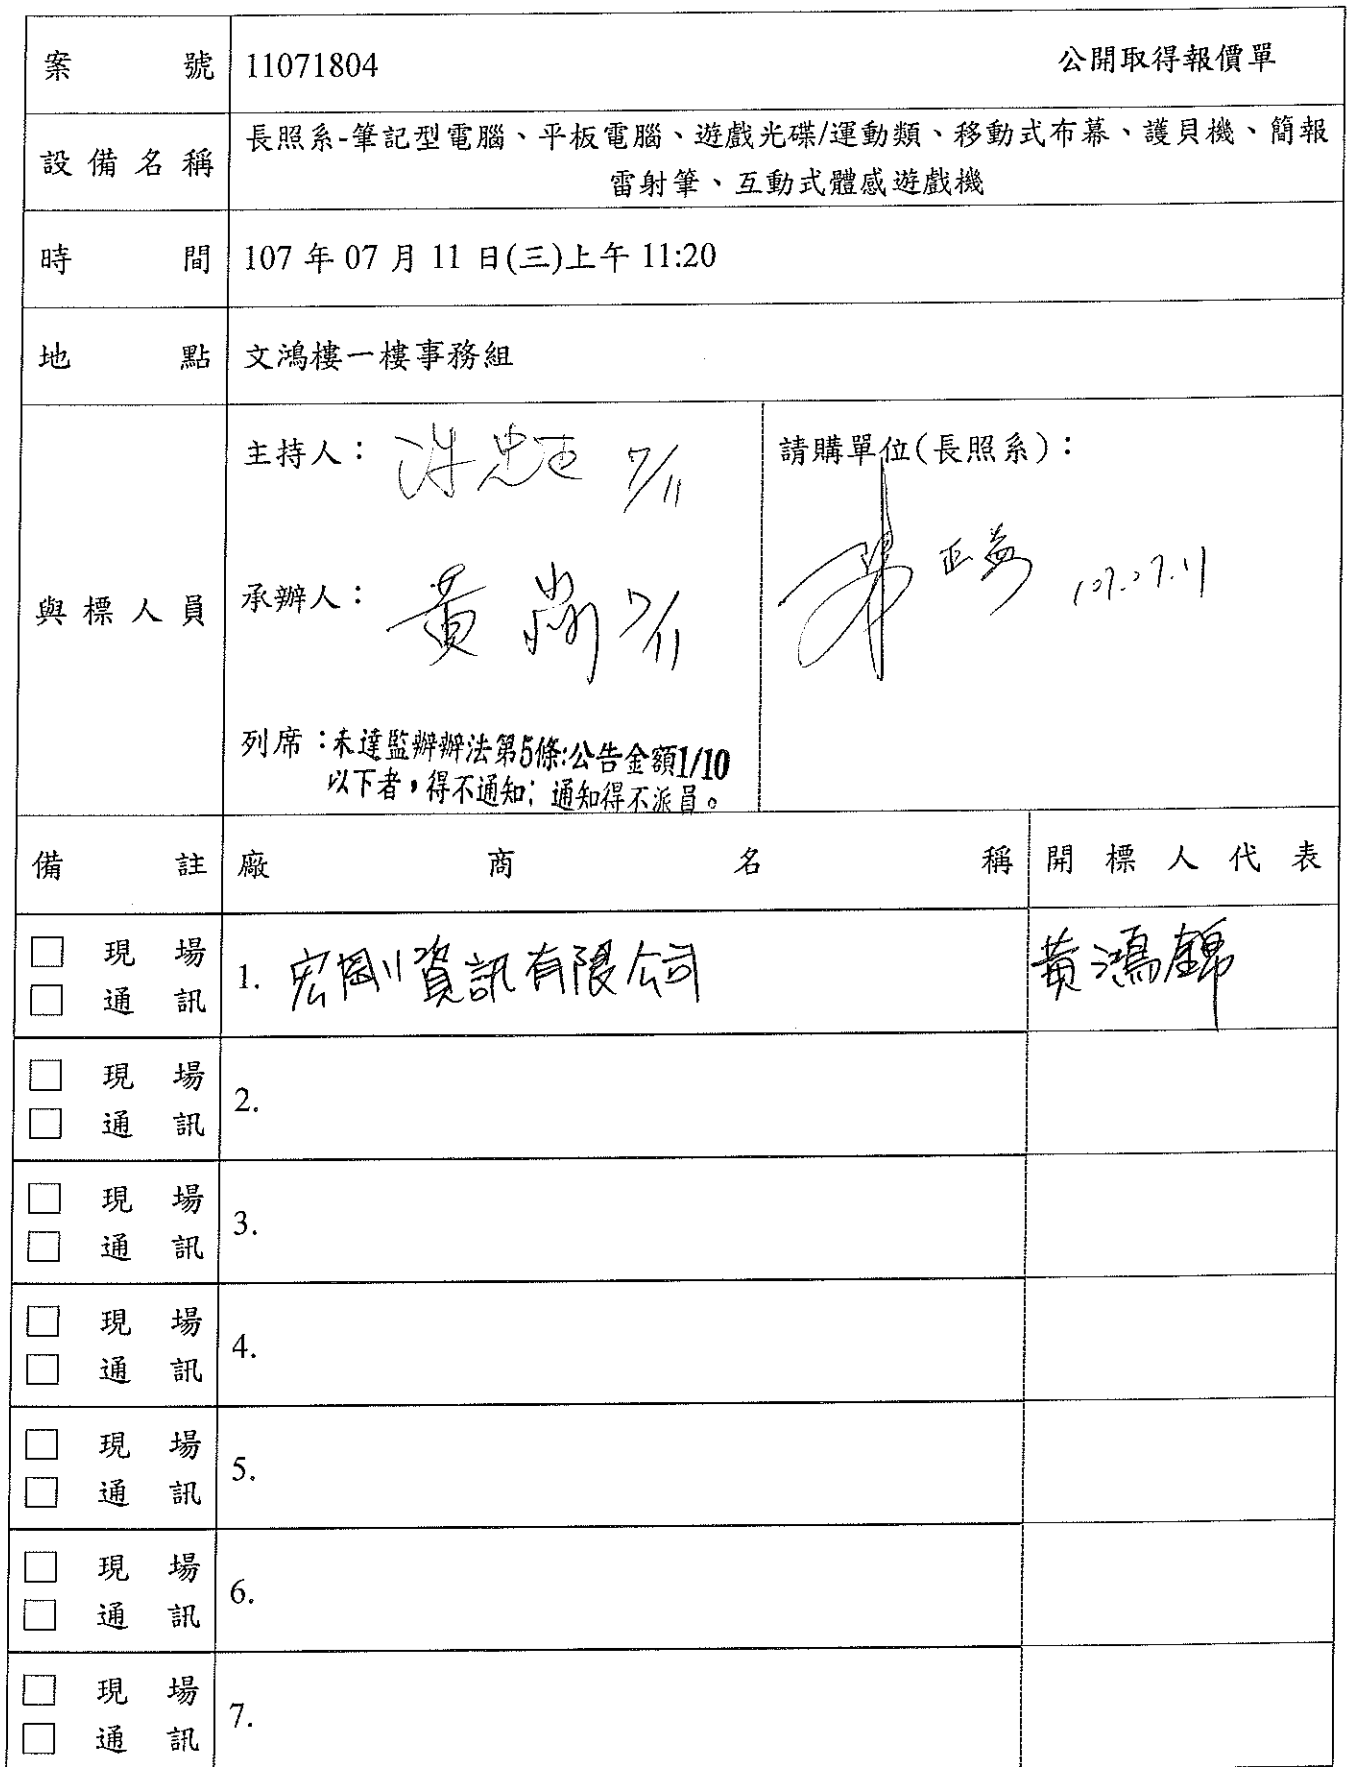 案號 11071804 公開取得報價單
設備名稱 長照系-筆記型電腦、平板電腦、遊戲光碟/運動類、移動式布幕、護貝機、簡報
雷射筆、互動式體感遊戲機
時間 107 年 07 月 11 日(三)上午 11:20
地點 文鴻樓一樓事務組
與標人員
主持人： 7/11
請購單位(長照系)：
正益 107.07.11
承辦人： 黃 7/11
列席：未達監辦辦法第5條:公告金額1/10
以下者，得不通知；通知得不派員。
備註 廠商名稱 開標人代表
□ 現場
□ 通訊
1. 宏剛資訊有限公司 黃鴻錦
□ 現場
□ 通訊
2.
□ 現場
□ 通訊
3.
□ 現場
□ 通訊
4.
□ 現場
□ 通訊
5.
□ 現場
□ 通訊
6.
□ 現場
□ 通訊
7.